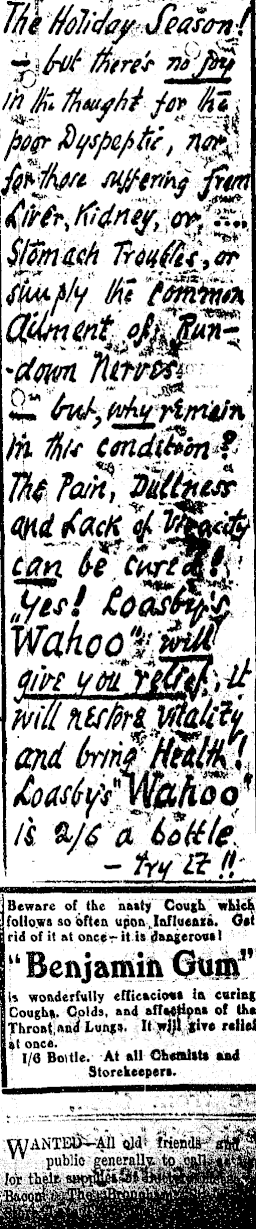 The Holiday Season!
— but there's no joy
in the thought for the
poor Dyspeptic, nor
for those suffering from
Liver, Kidney, or, ....
Stomach Troubles, or
simply the common
Ailment of Run-
-down Nerves
— but, why remain
in this condition?
The Pain, Dullness
and Lack of Vivacity
can be cured!
"Yes! Loasby's
"Wahoo" will
give you relief, it
will restore vitality
and bring Health!
Loasby's "Wahoo"
is 2/6 a bottle
— try it!!
Beware of the nasty Cough which
follows so often upon Influenza. Get
rid of it at once—it is dangerous!
"Benjamin Gum"
is wonderfully efficacious in curing
Coughs, Colds, and affections of the
Throat and Lungs. It will give relief
at once.
1/6 Bottle. At all Chemists and
Storekeepers.
WANTED—All old friends and
public generally to call
for their supplies of
Bacon